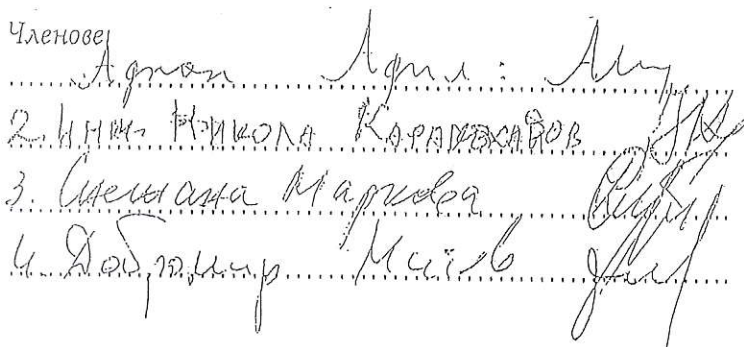 Членове
Аднан Адил:
2. инж. Никола
3. Снежана Маркова
4. Добромир Митев